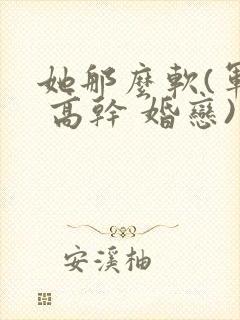 她那麼軟(軍
高幹 婚戀)
安溪柚